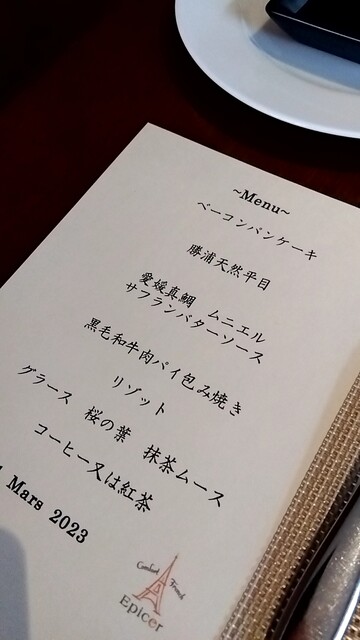 ~Menu~
ベーコンパンケーキ
勝浦天然平目
愛媛真鯛　ムニエル
サフランバターソース
黒毛和牛肉パイ包み焼き
リゾット
グラース　桜の葉　抹茶ムース
コーヒー又は紅茶
Mars 2023
Comfort French
Epicer